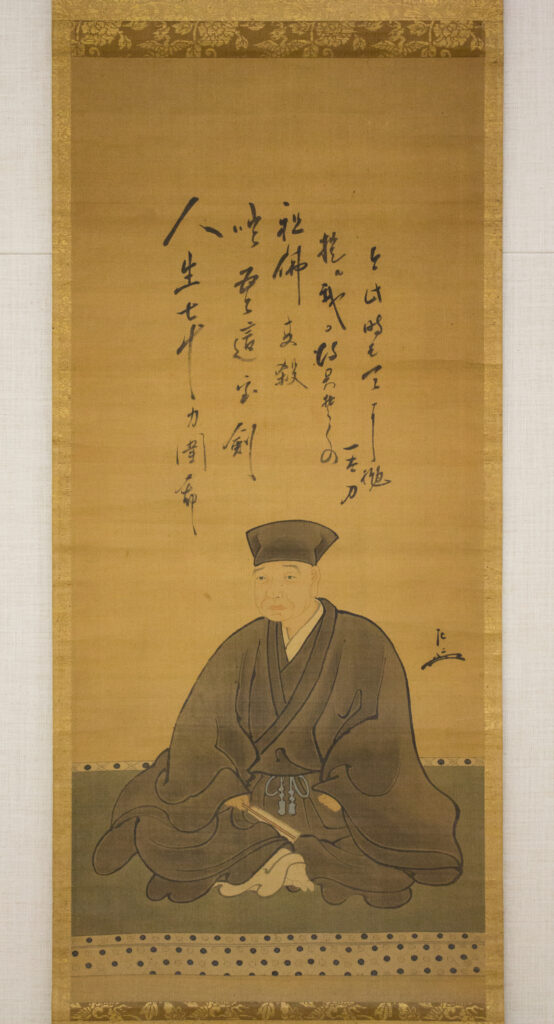 人生七十力圍希
咄吾這宝剣
祖佛共殺
提る我る得具足の
一太刀
今此時そ天に抛